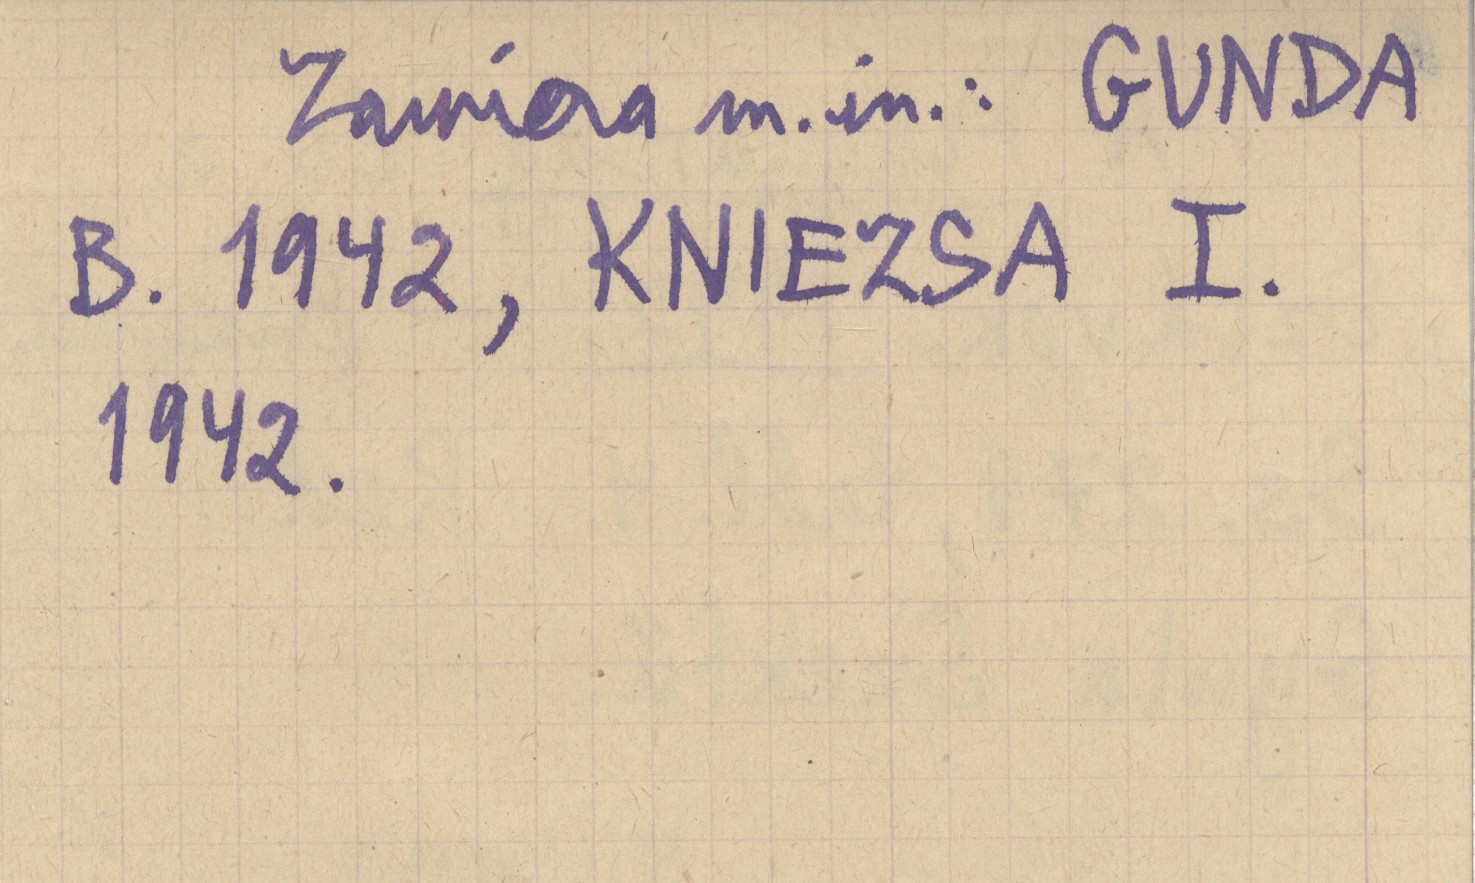 Zawiera m.in.: GUNDA
B. 1942, KNIEZSA I.
1942.